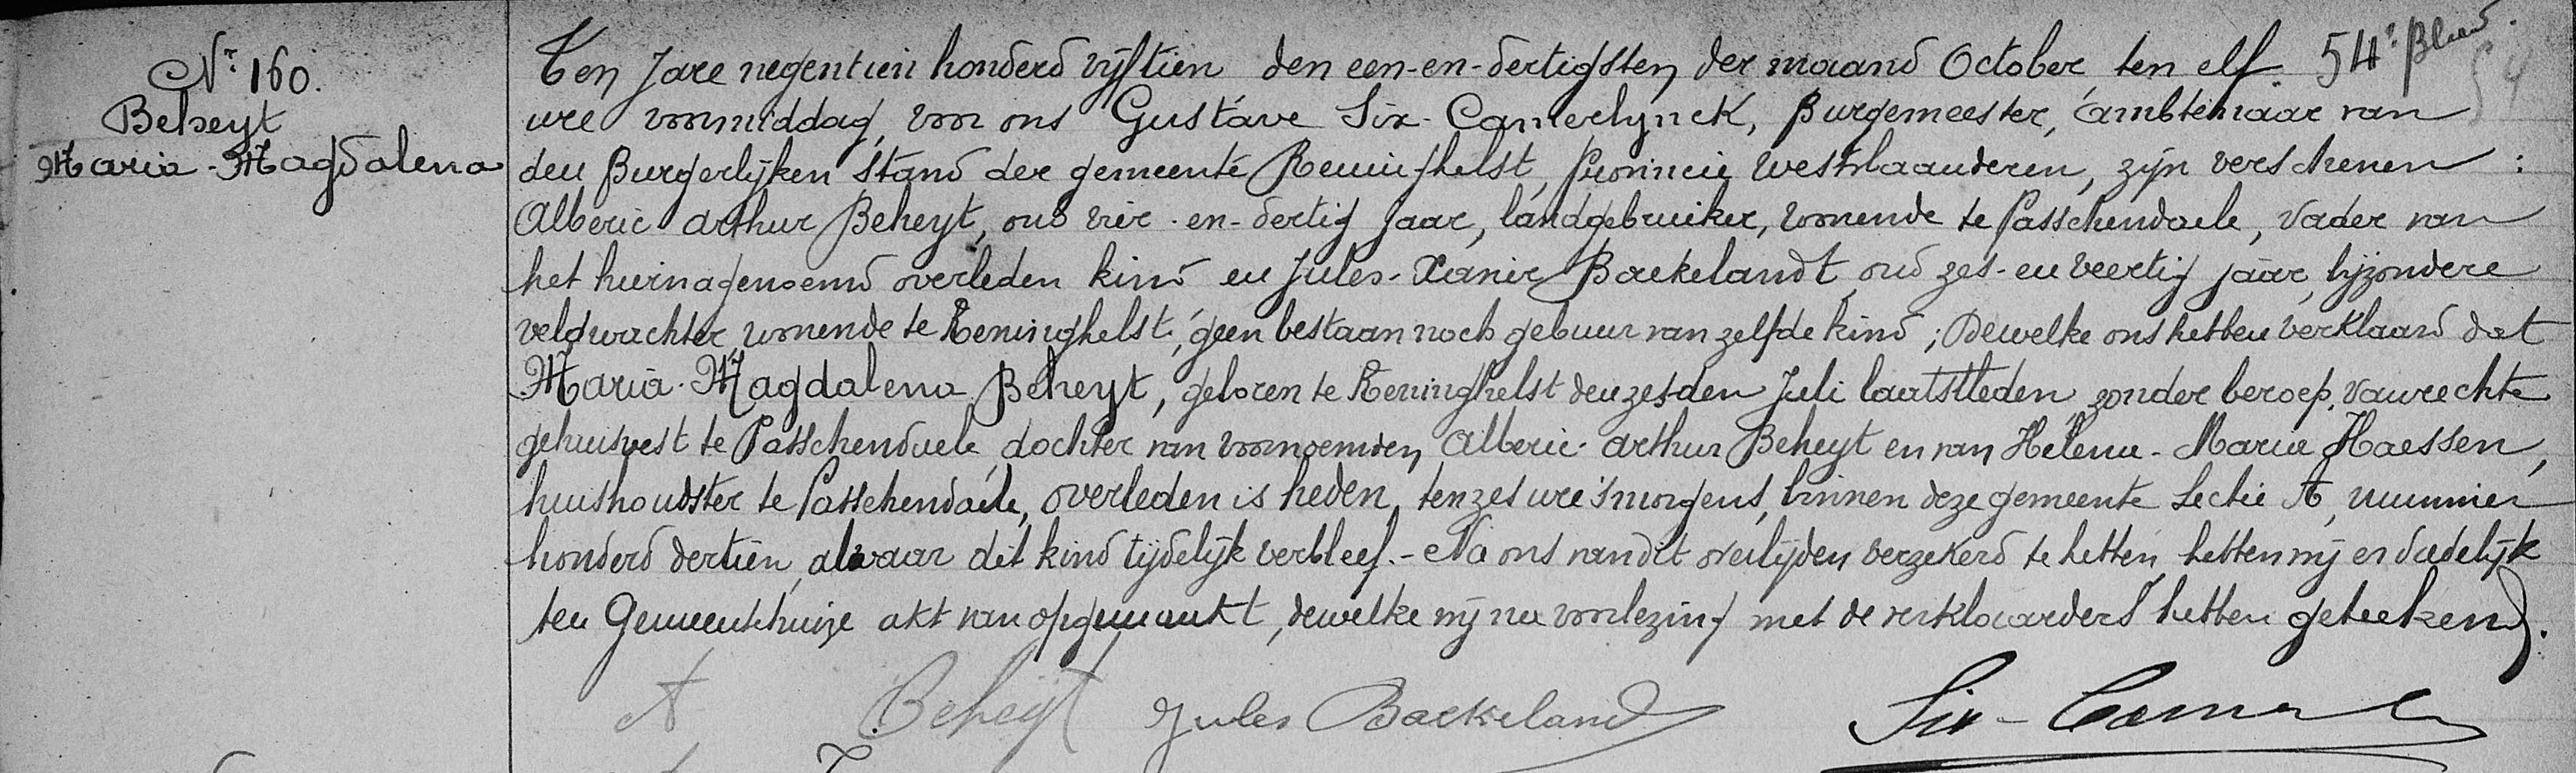 Nr 160.
Beheyt
Maria-Magdalena
54e Blad.
54
Ten Jare negentien honderd vijftien den een-en-dertigsten der maand October ten elf
ure voormiddag, voor ons Gustave Six-Camerlynck, Burgemeester, ambtenaar van
den Burgerlijken Stand der gemeente Reninghelst, Provincie Westvlaanderen, zijn verschenen :
Alberic Arthur Beheyt, oud vier-en-dertig jaar, landgebruiker, wonende te Passchendaele, vader van
het hiernagenoemd overleden kind en Jules-Xavier Baekelandt, oud zes-en veertig jaar, bijzondere
veldwachter, wonende te Reninghelst, geen bestaan noch gebuur van zelfde kind ; Dewelke ons hebben verklaard dat
Maria-Magdalena Beheyt, geboren te Reninghelst den zesden Juli laatstleden, zonder beroep, van rechte
gehuisvest te Passchendaele, dochter van voornoemden Alberic-Arthur Beheyt en van Helena-Maria Haessen,
huishoudster te Passchendaele, overleden is heden, ten zes ure 's morgens, binnen deze gemeente Sectie A, nummer
honderd dertien, alwaar dit kind tijdelijk verbleef.- Na ons van dit overlijden verzekerd te hebben, hebben wij er dadelijk
ten Gemeentehuize akt van opgemaakt, dewelke wij na voorlezing met de verklaarders hebben geteekend.
A Beheyt Jules Baekeland Six-Camer